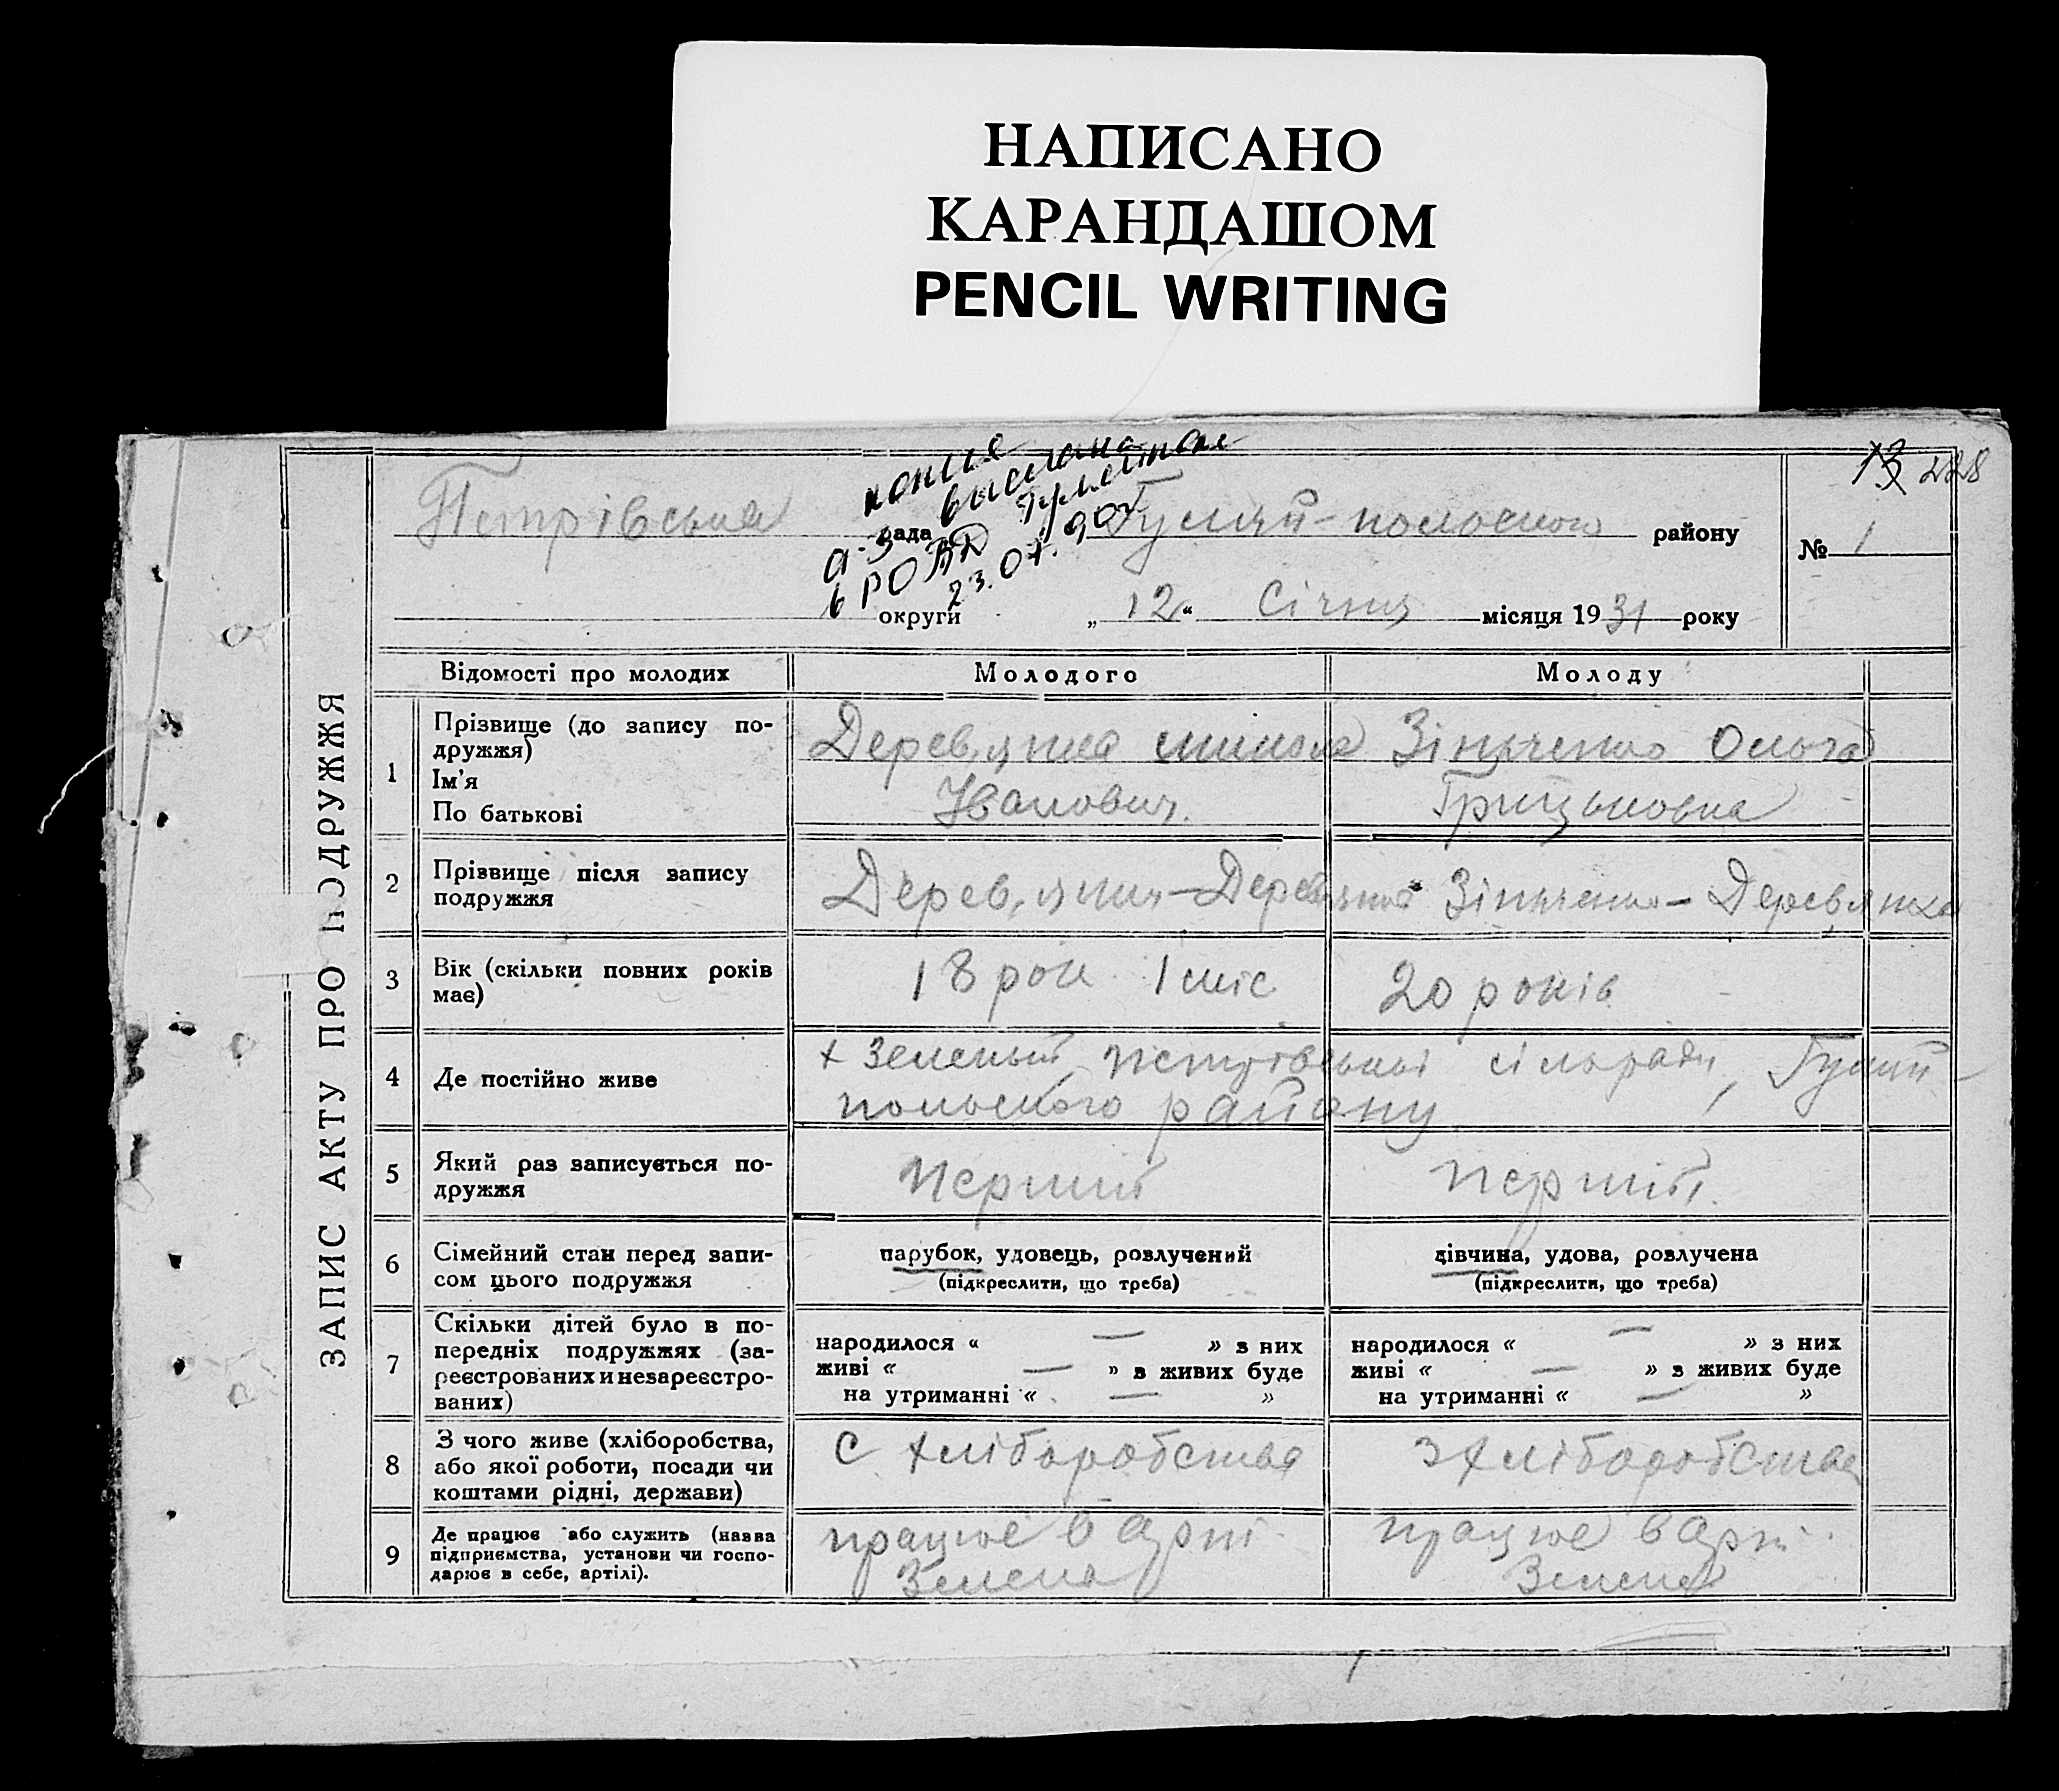 НАПИСАНО
КАРАНДАШОМ
PENCIL WRITING
13 228
копия
выслана
а-з Гуляйполе
в РОВД
23.07.90г
Петрівська рада Гуляй-польского району
№ 1
округи „12“ Січня місяця 1931 року
ЗАПИС АКТУ ПРО ПОДРУЖЖЯ
Відомості про молодих Молодого Молоду
1 Прізвище (до запису подружжя) Дерев,янка Микола Зінченко Ольга
Ім'я
По батькові Іванович. Грицьковна
2 Прізвище після запису Дерев,янка-Деревянка Зінченко-Дерев,янка
подружжя
3 Вік (скільки повних років 18 рок 1 міс 20 років
має)
4 Де постійно живе х Зелений, Петрівської сільради, Гуляй-
польского району
5 Який раз записується по- Перший перший.
дружжя
6 Сімейний стан перед запи- парубок, удовець, розлучений дівчина, удова, розлучена
сом цього подружжя (підкреслити, що треба) (підкреслити, що треба)
7 Скільки дітей було в по-
передніх подружжях (за- народилося « — » з них народилося « — » з них
реєстрованих и незареєстро- живі « — » з живих буде живі « — » з живих буде
ваних) на утриманні « — » на утриманні « — »
8 З чого живе (хліборобства, с хліборобства з хліборобства
або якої роботи, посади чи
коштами рідні, держави)
9 Де працює або служить (назва працює в арті працює в арті
підприємства, установи чи госпо- Зелена Зелена
дарює в себе, артілі).